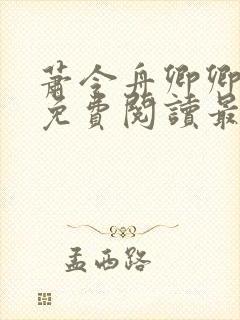 蕭令舟卿卿
免費閱讀最
孟西路